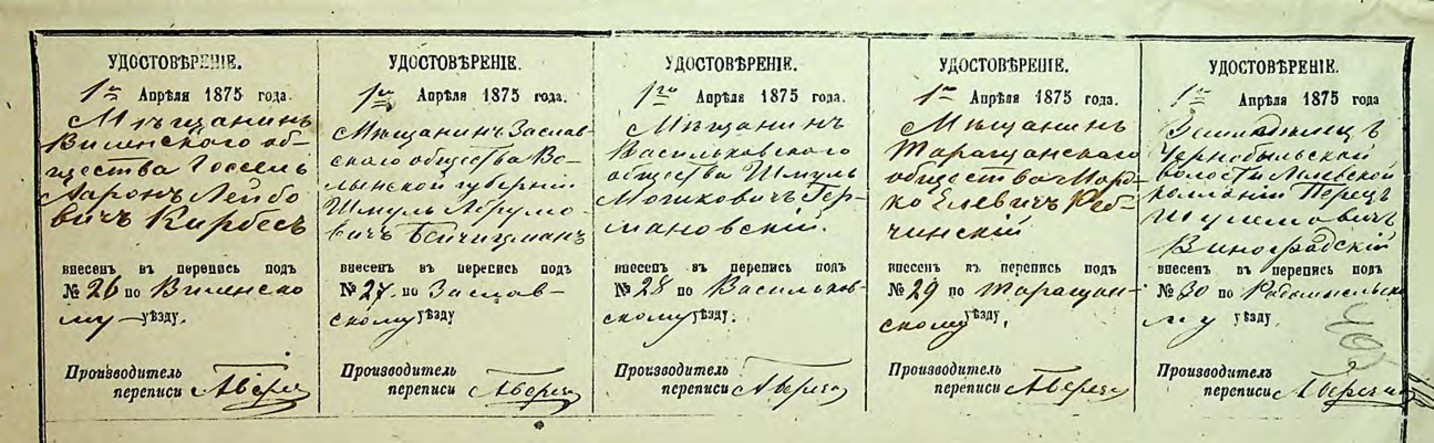 УДОСТОВѢРЕНІЕ.
1го Апрѣля 1875 года.
Мѣщанинъ
Виленского об-
щества Іоссель
Ааронъ Лейбо
вичъ Кирбесъ
внесенъ въ перепись подъ
№ 26 по Виленско
му уѣзду.
Производитель
переписи
УДОСТОВѢРЕНІЕ.
1го Апрѣля 1875 года.
Мѣщанинъ Заслав-
ского общества Во-
лынской губерніи
Шмуль Абрумо-
вичъ
внесенъ въ перепись подъ
№ 27 по Заслав-
скому уѣзду
Производитель
переписи
УДОСТОВѢРЕНІЕ.
1го Апрѣля 1875 года.
Мѣщанинъ
Васильковского
общества Шмуль
Мошковичъ Гер-
мановскій.
внесенъ въ перепись подъ
№ 28 по Васильков-
скому уѣзду.
Производитель
переписи
УДОСТОВѢРЕНІЕ.
1го Апрѣля 1875 года.
Мѣщанинъ
Таращанского
общества Морд-
ко Елевичъ
чинскій
внесенъ въ перепись подъ
№ 29 по Таращан-
скому уѣзду.
Производитель
переписи
УДОСТОВѢРЕНІЕ.
1го Апрѣля 1875 года
Земледѣлецъ
Чернобыльской
волости
Перецъ
Шулемовичъ
Виноградскій
внесенъ въ перепись подъ
№ 30 по Радомысльско
му уѣзду
Производитель
переписи